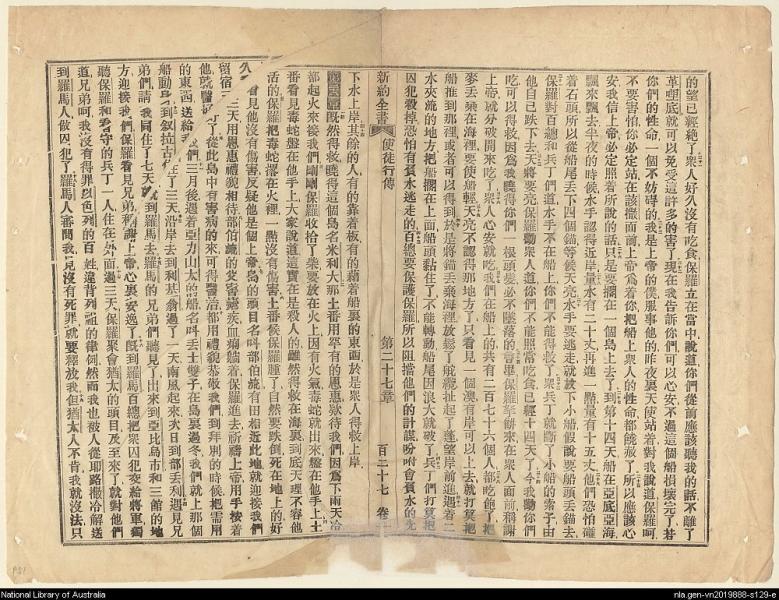 的望已經絶了衆人好久沒有吃食保羅立在當中說道你們從前應該聽我的話不離了
革哩底就可以免受這許多的害了現在我告訴你們可以心安不過這個船損壞完了若
你們的性命一個不妨碍的我是上帝的僕服事他的昨夜裏天使站着對我說道保羅呵
不要害怕你必定站在該撒面前上帝爲着你把船上衆人的性命都饒赦了所以應該心
安我信上帝必定照着所說的話只是要擱在一個島上去了到第十四天船在亞底亞海
飄來飄去半夜的時候水手認得近岸量水有二十丈再進一點量有十五丈他們恐怕碰
着石頭所以從船尾丢下四個錨等候天亮水手要逃走就放下小船假說要船頭丢錨去
保羅對百總和兵丁們道水手不在船上你們不能得救了衆兵丁就斷了小船的索子由
他自己跌下去天將要亮保羅勸衆人道你們不能照常吃食已經十四天了今我勸你們
吃可以得救因爲我曉得你們一根頭髮必不墜落的曾畢保羅拏餅來在衆人面前稱謝
上帝就分破開來吃了衆人心安就吃我們在船上的共有二百七十六個人都吃飽了把
麥丢棄在海裡要使船輕天亮不認得那地方了只看見一個澳有岸可以上去就打算把
船推到那裡或者可以得到於是將錨丢棄海裡放鬆了舵纜扯起了篷望岸前進遇着二
水夾流的地方把船擱在上面船頭黏住了不能轉動船尾因浪大就破了兵丁們打算把
囚犯殺掉恐怕有泅水逃走的百總要保護保羅所以阻擋他們的計謀吩咐會泅水的先
新約全書 使徒行傳 第二十七章 百二十七 卷
下水上岸其餘的人有的靠着板有的藉着船裏的東西於是衆人得救上岸
既然得救曉得這個島名米利大那土番用罕有的恩惠欵待我們因爲下雨天冷
都起火來接我們剛剛保羅收恰了柴要放在火上因有火氣毒蛇就出來盤在他手上土
番看見毒蛇盤在他手上大家說道這實在是殺人的雖然得救在海裏到底天理不容他
活的保羅把毒蛇撂在火裡一點沒有傷害土番候保羅腫了自然要跌倒死在地上的好
久 看見他沒有傷害反疑他是個上帝島的頭目名叫部伯流有田相近此地就迎接我們
留宿 三天用恩惠禮貌相待部伯流的父害瘧疾血痢臨着保羅進去祈禱上帝用手按着
他就醫好 了從此島中有害病的來可得醫治都用禮貌恭敬我們到拜別的時候把需用
的東西送給 我們三月後遇着亞力山太的船名叫丢士雙子在島裏過冬我們就上那個
船動身到叙拉古 住了三天沿岸去到利基翁過了一天南風起來次日到部丢利遇見兄
弟們請我同住了七天 就到羅馬去羅馬的兄弟們聽見了出來到亞比島市和三館的地
方迎接我們保羅看見兄弟稱謝上帝心裏安逸了旣到羅馬百總把衆囚犯交給將軍獨
聽保羅和看守的兵丁一人住在外面過三天保羅聚會猶太的頭目及至來了就對他們
道兄弟呵我沒有得罪以色列的百姓違背列祖的律例然而我也被人從耶路撒冷解送
到羅馬人做囚犯了羅馬人審問我見沒有死罪就要釋放我但猶太人不肯我就沒法只
National Library of Australia
nla.gen-vn2019888-s129-e